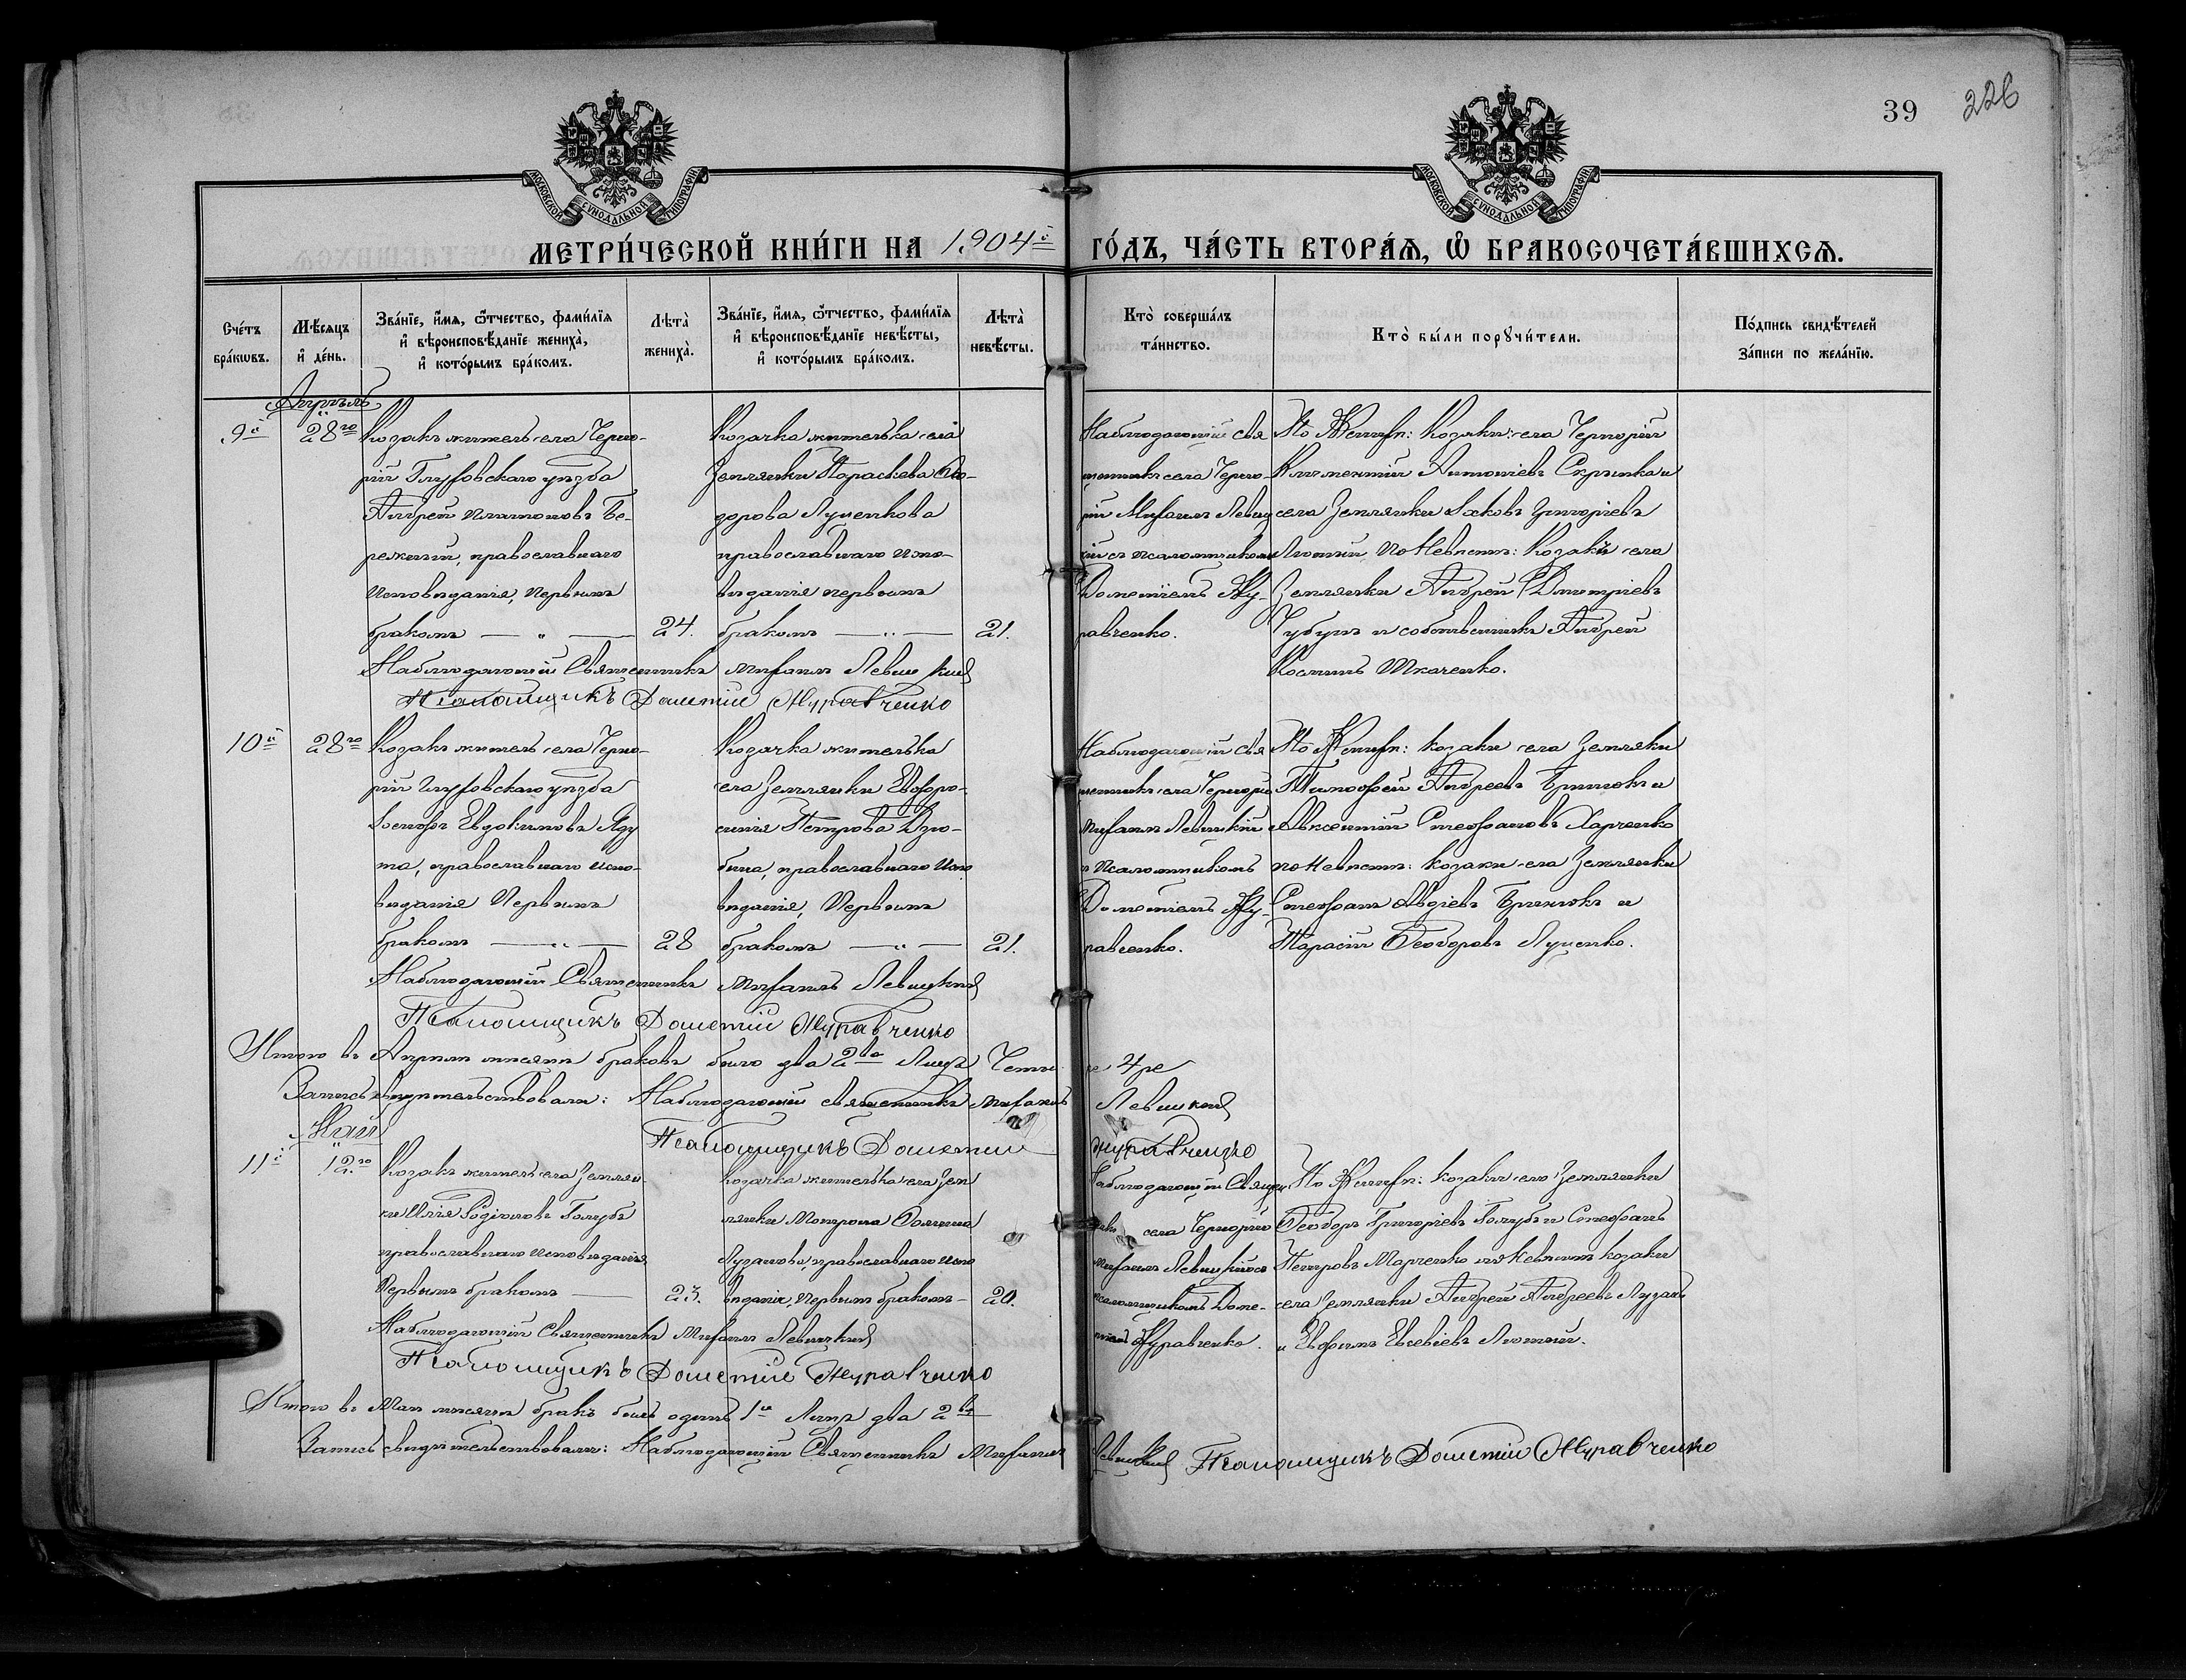 39 226
МОСКОВСКОЙ СѴНОДАЛЬНОЙ ТИПОГРАФІИ
МОСКОВСКОЙ СѴНОДАЛЬНОЙ ТИПОГРАФІИ
МЕТРИ́ЧЕСКОЙ КНИ́ГИ НА 1904й
ГО́ДЪ, ЧА́СТЬ ВТОРА́Ѧ, Ѡ҆ БРАКОСОЧЕТА́ВШИХСѦ.
Сче́тъ
бра́кѡвъ.
Мѣ́сѧцъ
и҆ де́нь.
Зва́нїе, и҆́мѧ, ѻ҆́тчество, фами́лїѧ
и҆ вѣроисповѣ́данїе жениха̀,
и҆ кото́рымъ бра́комъ.
Лѣта̀
жениха̀.
Зва́нїе, и҆́мѧ, ѻ҆́тчество, фами́лїѧ
и҆ вѣроисповѣ́данїе невѣ́сты,
и҆ кото́рымъ бра́комъ.
Лѣта̀
невѣ́сты.
Кто̀ соверша́лъ
та́инство.
Кто̀ бы́ли порꙋчи́тели.
По́дпись свидѣ́телей
за́писи по жела́нїю.
Апрѣль
9й
28го
Козакъ житель села Черто-
рій Глуховскаго уѣзда
Андрей Платоновъ Бе-
режный, православнаго
исповѣданія, первымъ
бракомъ — „ —
24.
Козачка жителька села
Землянки Параскева Ѳео-
дорова Луценкова
православнаго испо-
вѣданія первымъ
бракомъ — „ —
21.
Наблюдающій свя
щенникъ села Черто-
рій Михаилъ Левиц
кій съ псаломщикомъ
Дометіемъ Жу-
равченко.
По Женихѣ: Козаки: села Чорторій
Климентій Антоніевъ Скрипка и
села Землянки Іаковъ Григоріевъ
Лютый по Невѣстѣ: Козакъ села
Землянки Андрей Димитріевъ
Чубунъ и собственникъ Андрей
Косминъ Ткаченко.
Наблюдающій Священникъ Михаилъ Левицкій
Псаломщикъ Дометій Журавченко
10й
28го
Козакъ житель села Черто-
рій Глуховскаго уѣзда
Іосифъ Евдокимовъ Яду
та, православнаго испо-
вѣданія Первымъ
бракомъ — „ —
28
Козачка жителька
села Землянки Евфро-
синія Петрова Дзю-
бина, православнаго испо
вѣданія, Первымъ
бракомъ — „ —
21.
Наблюдающій свя
щенникъ села Чертори
Михаилъ Левицкій
съ Псаломщикомъ
Дометіемъ Жу-
равченко.
По Женихѣ: козаки села Землянки
Тимофей Андреевъ Гринюкъ и
Авксентій Стефановъ Харченко
по Невѣстѣ: козаки села Землянки
Стефанъ Авдіевъ Гринюкъ и
Тарасій Ѳеодоровъ Луценко.
Наблюдающій Священникъ Михаилъ Левицкій
Псаломщикъ Дометій Журавченко
Итого въ Апрѣлѣ мѣсяцѣ браковъ было два 2ва Лицъ Четы ре 4ре
Запись свидѣтельствовали: Наблюдающій священникъ Михаилъ Левицкій
Псаломщикъ Дометій Журавченко
Май
11й
12го
Козакъ житель села Землян-
ки Илія Родіоновъ Голубъ
православнаго исповѣданія
Первымъ бракомъ —
23.
Козачка жителька села Зем
лянки Матрона Ѳомина
Лузанова, православнаго испо
вѣданія, Первымъ бракомъ —
20.
Наблюдающій Священ
никъ села Черторій
Михаилъ Левицкій съ
псаломщикомъ Доме-
тіемъ Журавченко.
По Женихѣ: козаки села Землянки
Ѳеодоръ Григоріевъ Голубъ и Стефанъ
Петровъ Марченко по Невѣстѣ козаки
села Землянки Андрей Андреевъ Лузанъ
и Евфимъ Евсевіевъ Лютый.
Наблюдающій Священникъ Михаилъ Левицкій
Псаломщикъ Дометій Журавченко
Итого въ Маѣ мѣсяцѣ бракъ былъ одинъ 1нъ Лицъ два 2ва
Запись свидѣтельствовали: Наблюдающій Священникъ Михаилъ Левицкій Псаломщикъ Дометій Журавченко